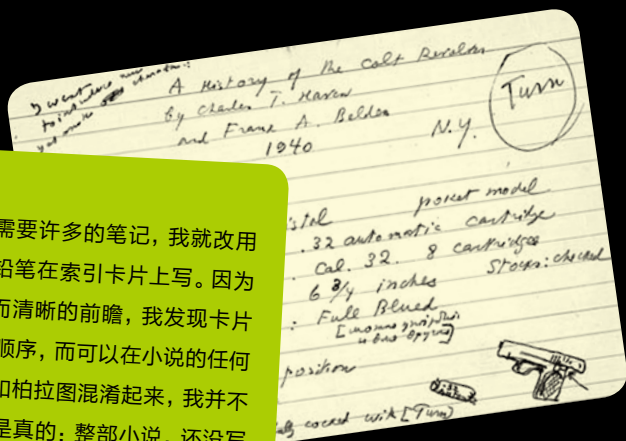 A History of the Colt Revolver
by Charles T. Haven
and Frank A. Belden
1940
N.Y.
Turn
pocket model
.32 automatic cartridge
Cal. 32. 8 cartridges
6 3/4 inches
Stocks: checked
: Full Blued
position
cocked with [Turn]
需要许多的笔记，我就改用
铅笔在索引卡片上写。因为
而清晰的前瞻，我发现卡片
顺序，而可以在小说的任何
和柏拉图混淆起来，我并不
是真的；整部小说，还没写